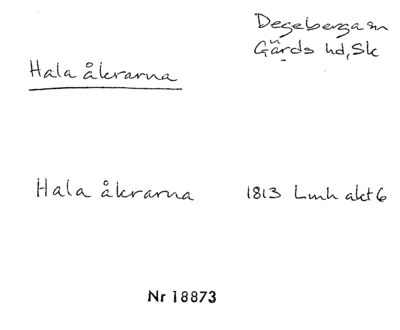 Degeberga sn
Gärds hd, Sk
Hala åkrarna
Hala åkrarna 1813 Lmh akt 6
Nr 18873